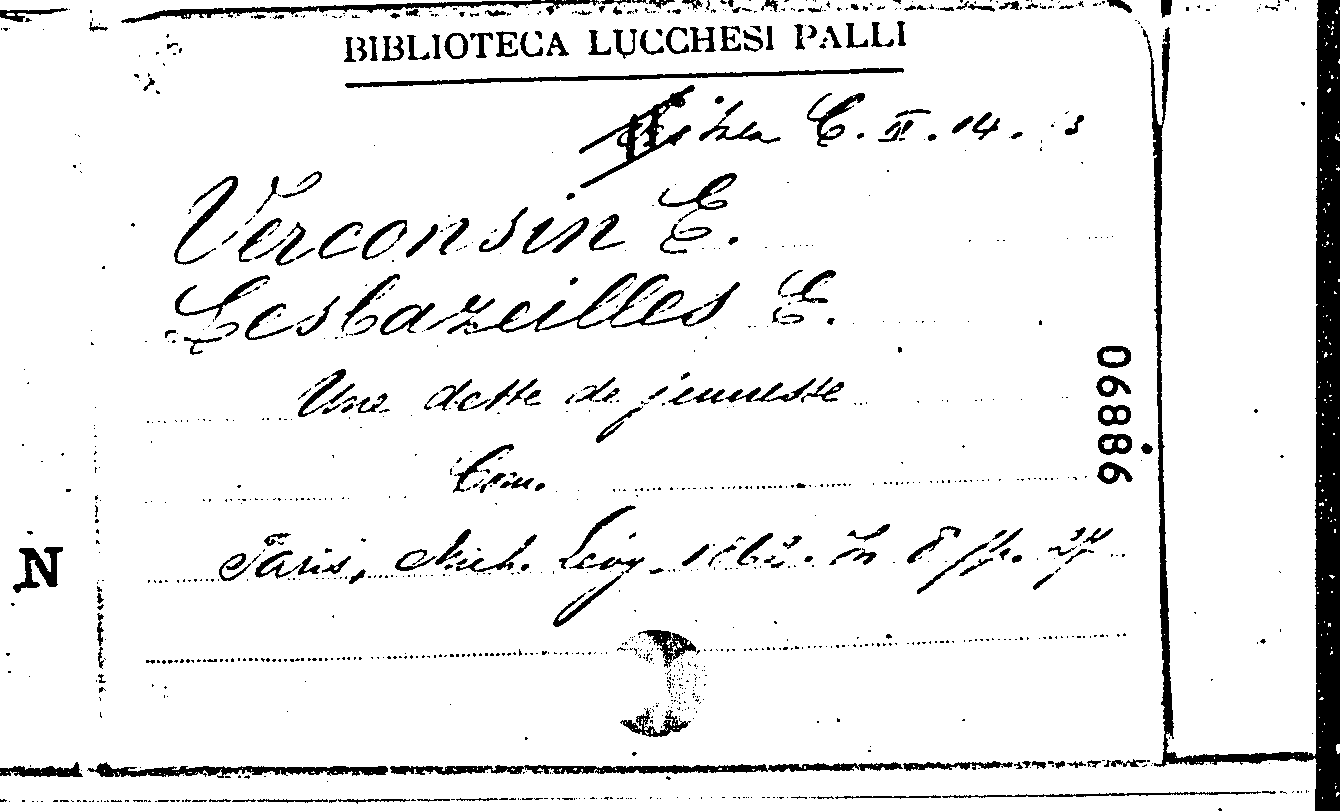 BIBLIOTECA LUCCHESI PALLI
C. II. 14. 3
Verconsin E.
Lesbazeilles E.
Une dette de jeunesse
Com.
06886
N
Paris, Mich. Lévy. 1862. In 8 pp. 27